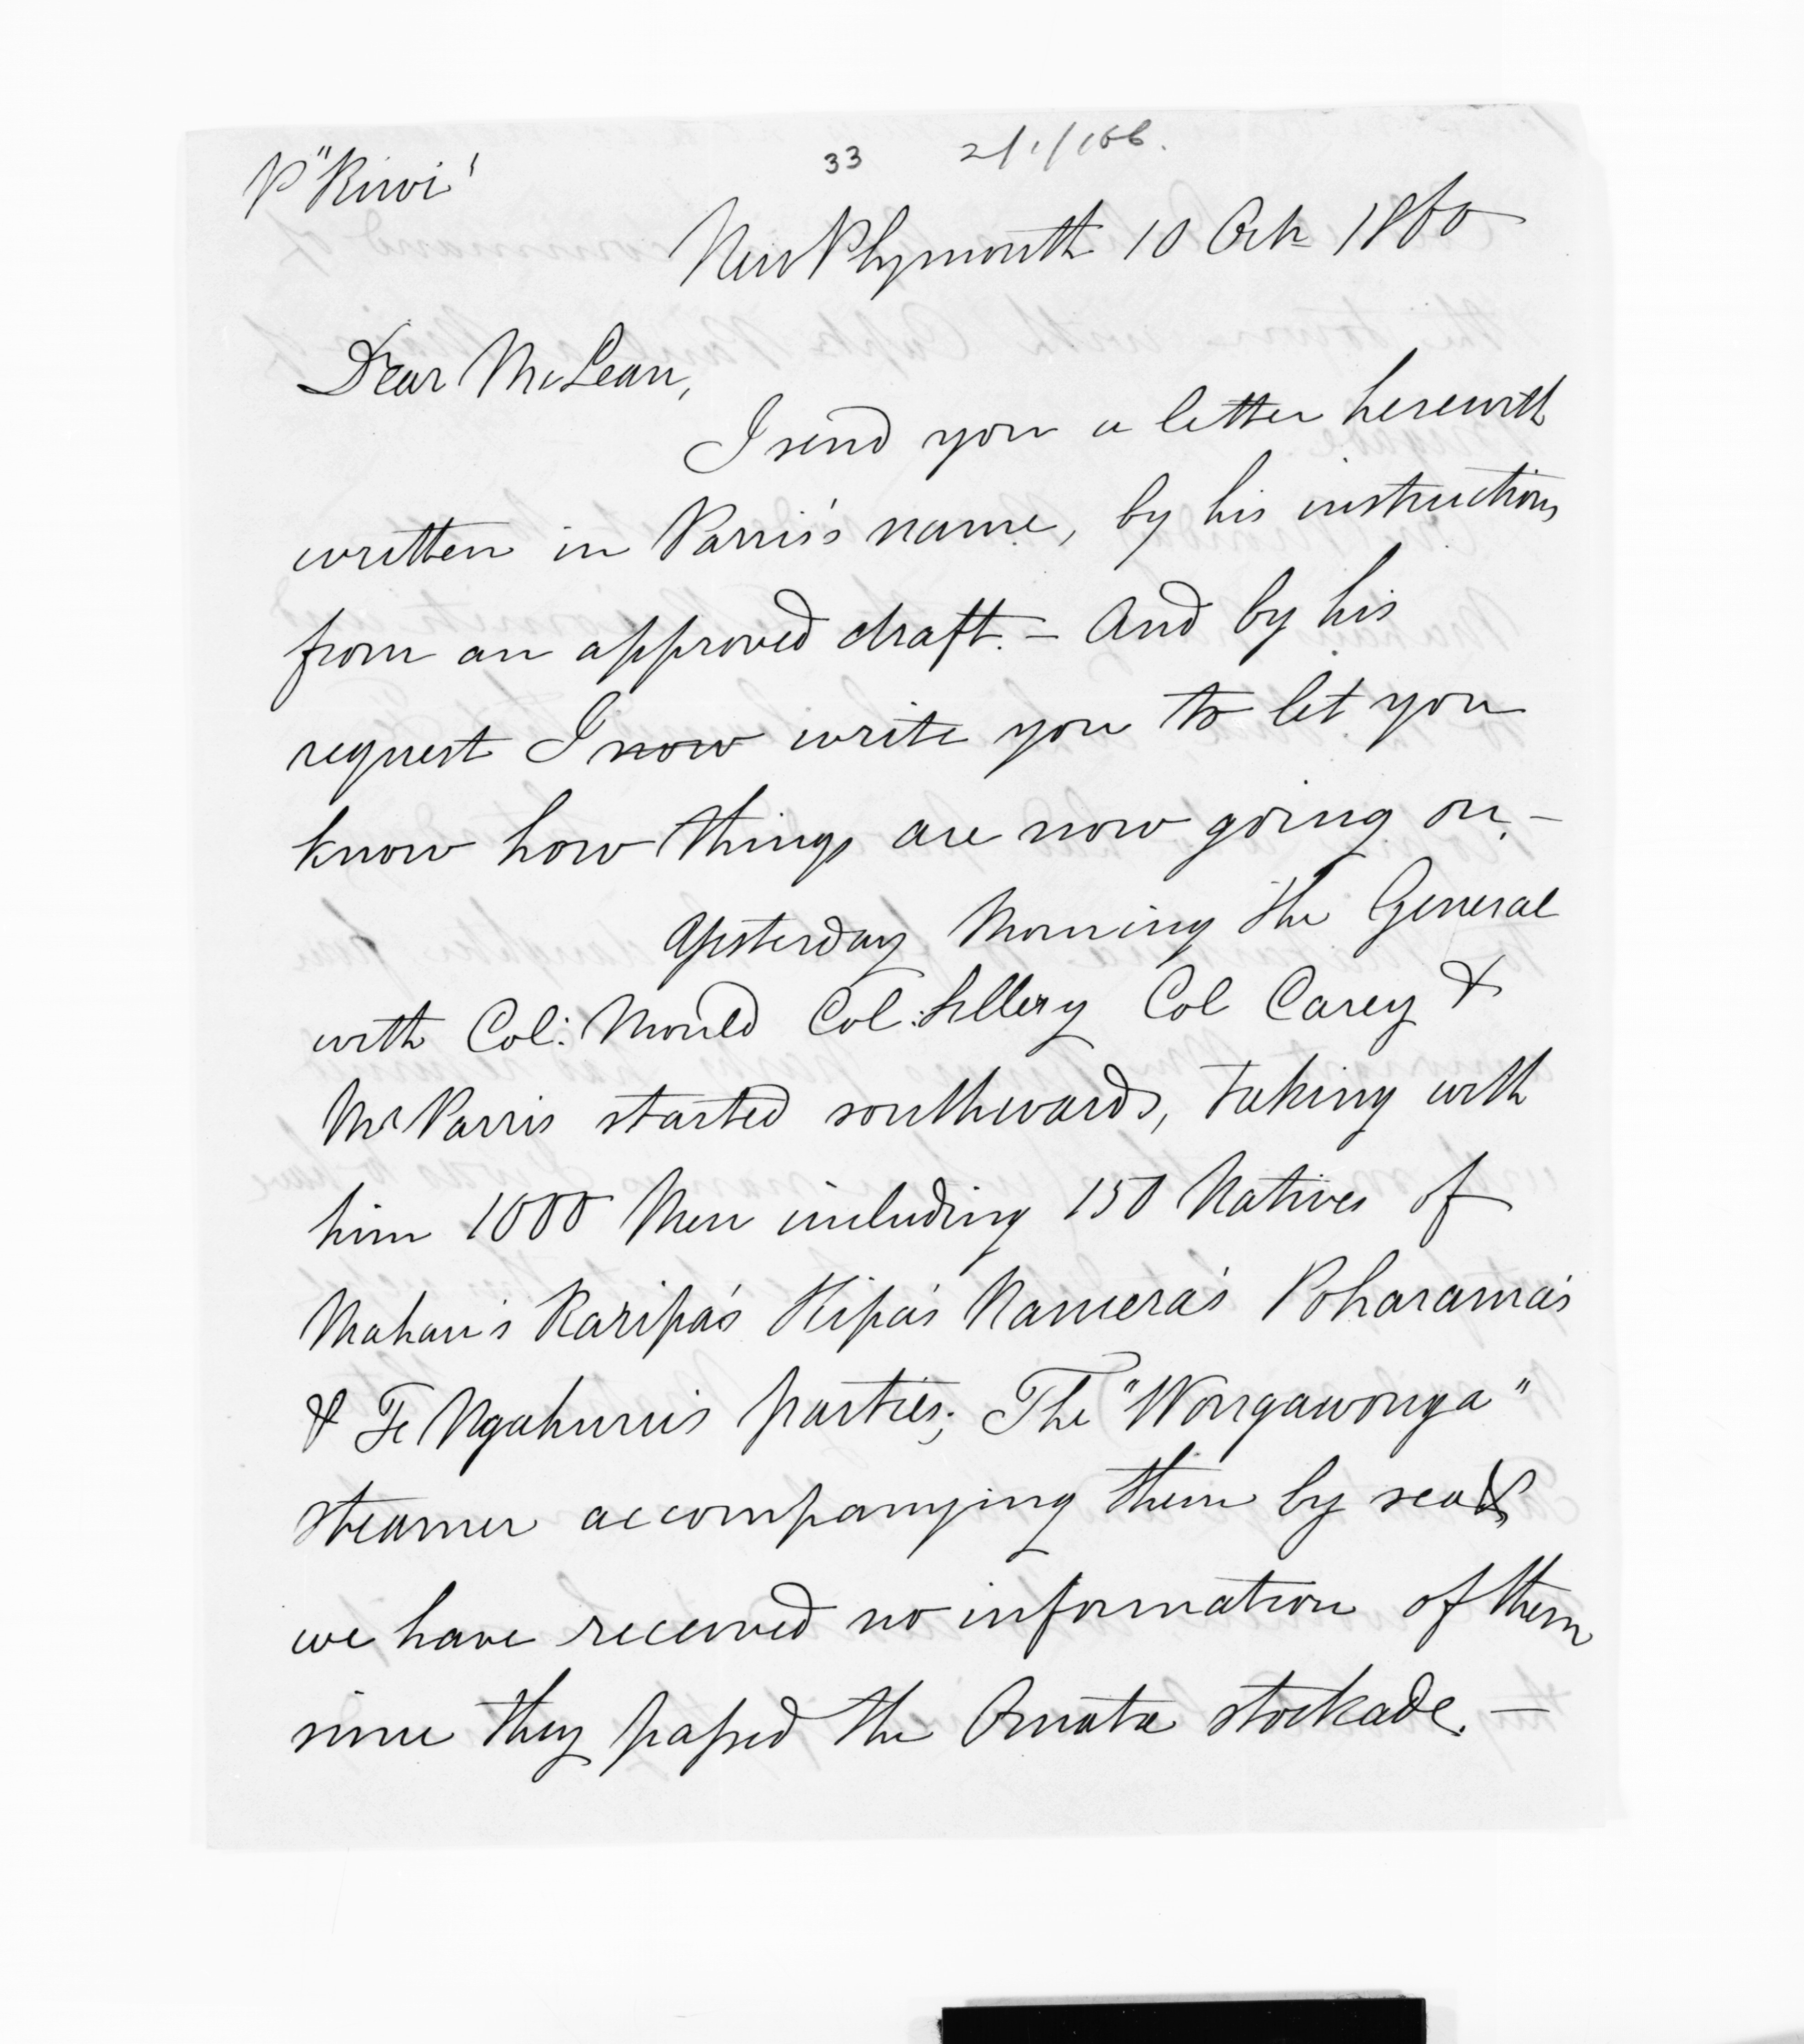 P "Kiwi"
33 2/1/166.
New Plymouth 10 Oct 1860
Dear McLean,
I send you a letter herewith
written in Parris's name, by his instructions
from an approved draft. – And by his
request I now write you to let you
know how things are now going on. –
Yesterday Morning the General
with Col: Mould Col: Sillery Col Carey &
Mr Parris started southwards, taking with
him 1000 Men including 150 Natives of
Mahau's Raripa's Hipa's Ramera's Poharama's
& Te Ngahuru's parties; The "Wongawonga"
steamer accompanying them by sea &
we have received no information of them
since they passed the Omata stockade. –